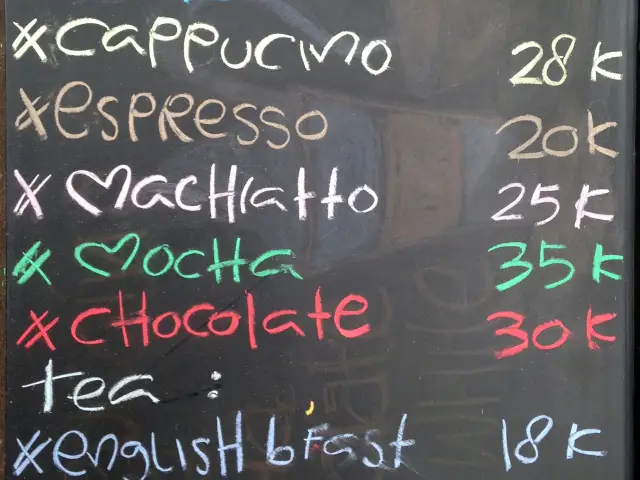 *Cappucino 28K
*espresso 20K
*MacHiatto 25K
*MocHa 35K
*CHocolate 30K
tea :
*englisH bfast 18K